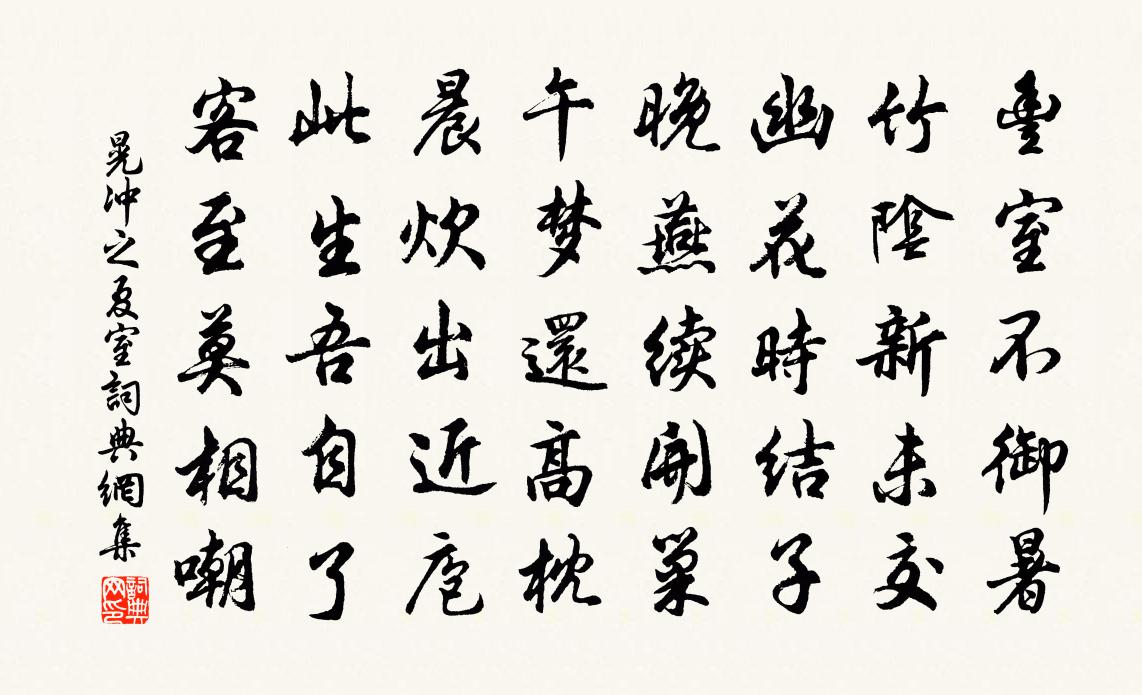 豐室不御暑
竹陰新未交
幽花時結子
晚燕续開巢
午梦還高枕
晨炊出近庖
此生吾自了
客至莫相嘲
晁冲之夏室詞典網集
詞典网印